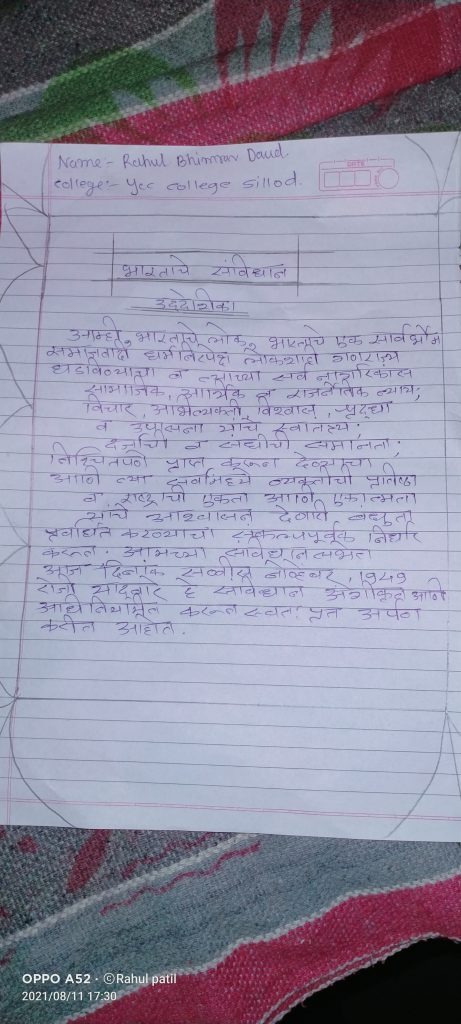 Name:- Rahul Bhimrav Daud.
college:- Ycc college sillod.
DATE
भारताचे संविधान
उद्देशिका
आम्ही, भारताचे लोक, भारताचे एक सार्वभौम
समाजवादी धर्मनिरपेक्ष लोकशाही गणराज्य
घडविण्याचा व त्याच्या सर्व नागरिकास
सामाजिक, आर्थिक व राजनैतिक न्याय;
विचार, अभिव्यक्ती, विश्वास, श्रद्धा
व उपासना यांचे स्वातंत्र्य;
दर्जाची व संधीची समानता;
निश्चितपणे प्राप्त करून देण्याचा
आणि त्या सर्वांमध्ये व्यक्तीची प्रतिष्ठा
व राष्ट्राची एकता आणि एकात्मता
यांचे आश्वासन देणारी बंधुता
प्रवर्धित करण्याचा संकल्पपूर्वक निर्धार
करून. आमच्या संविधान सभेत
आज दिनांक सव्वीस नोव्हेंबर, 1949
रोजी याद्वारे हे संविधान अंगीकृत आणि
अधिनियमित करून स्वतः प्रत अर्पण
करीत आहोत.
OPPO A52 · ©Rahul patil
2021/08/11 17:30